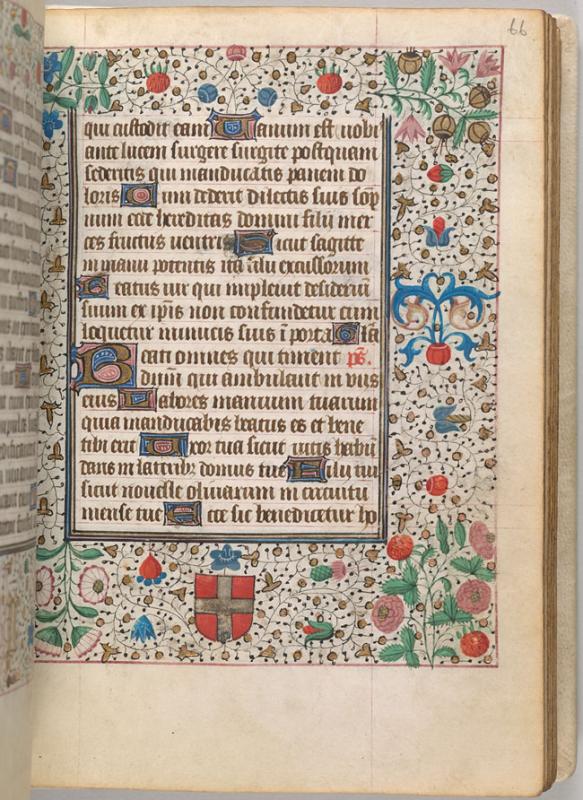 66
qui custodit eam Uanum est uobis
ante lucem surgere surgite postquam
sederitis qui manducatis panem do
loris Cum dederit dilectis suis sop
num ecce hereditas domini filij mer
ces fructus uentris Sicut sagitte
in manu potentis ita filij excussorum
Beatus uir qui impleuit desideriū
suum ex ip̄is non confundetur cum
loquetur inimicis suis ī porta Gla
Beati omnes qui timent ps̄.
dūm qui ambulant in viis
eius Labores manuum tuarum
quia manducabis beatus es et bene
tibi erit Uxor tua sicut uitis habūn
dans in laterib; domus tue Filij tui
sicut nouelle oliuarum in circuitu
mense tue Ecce sic benedicetur ho